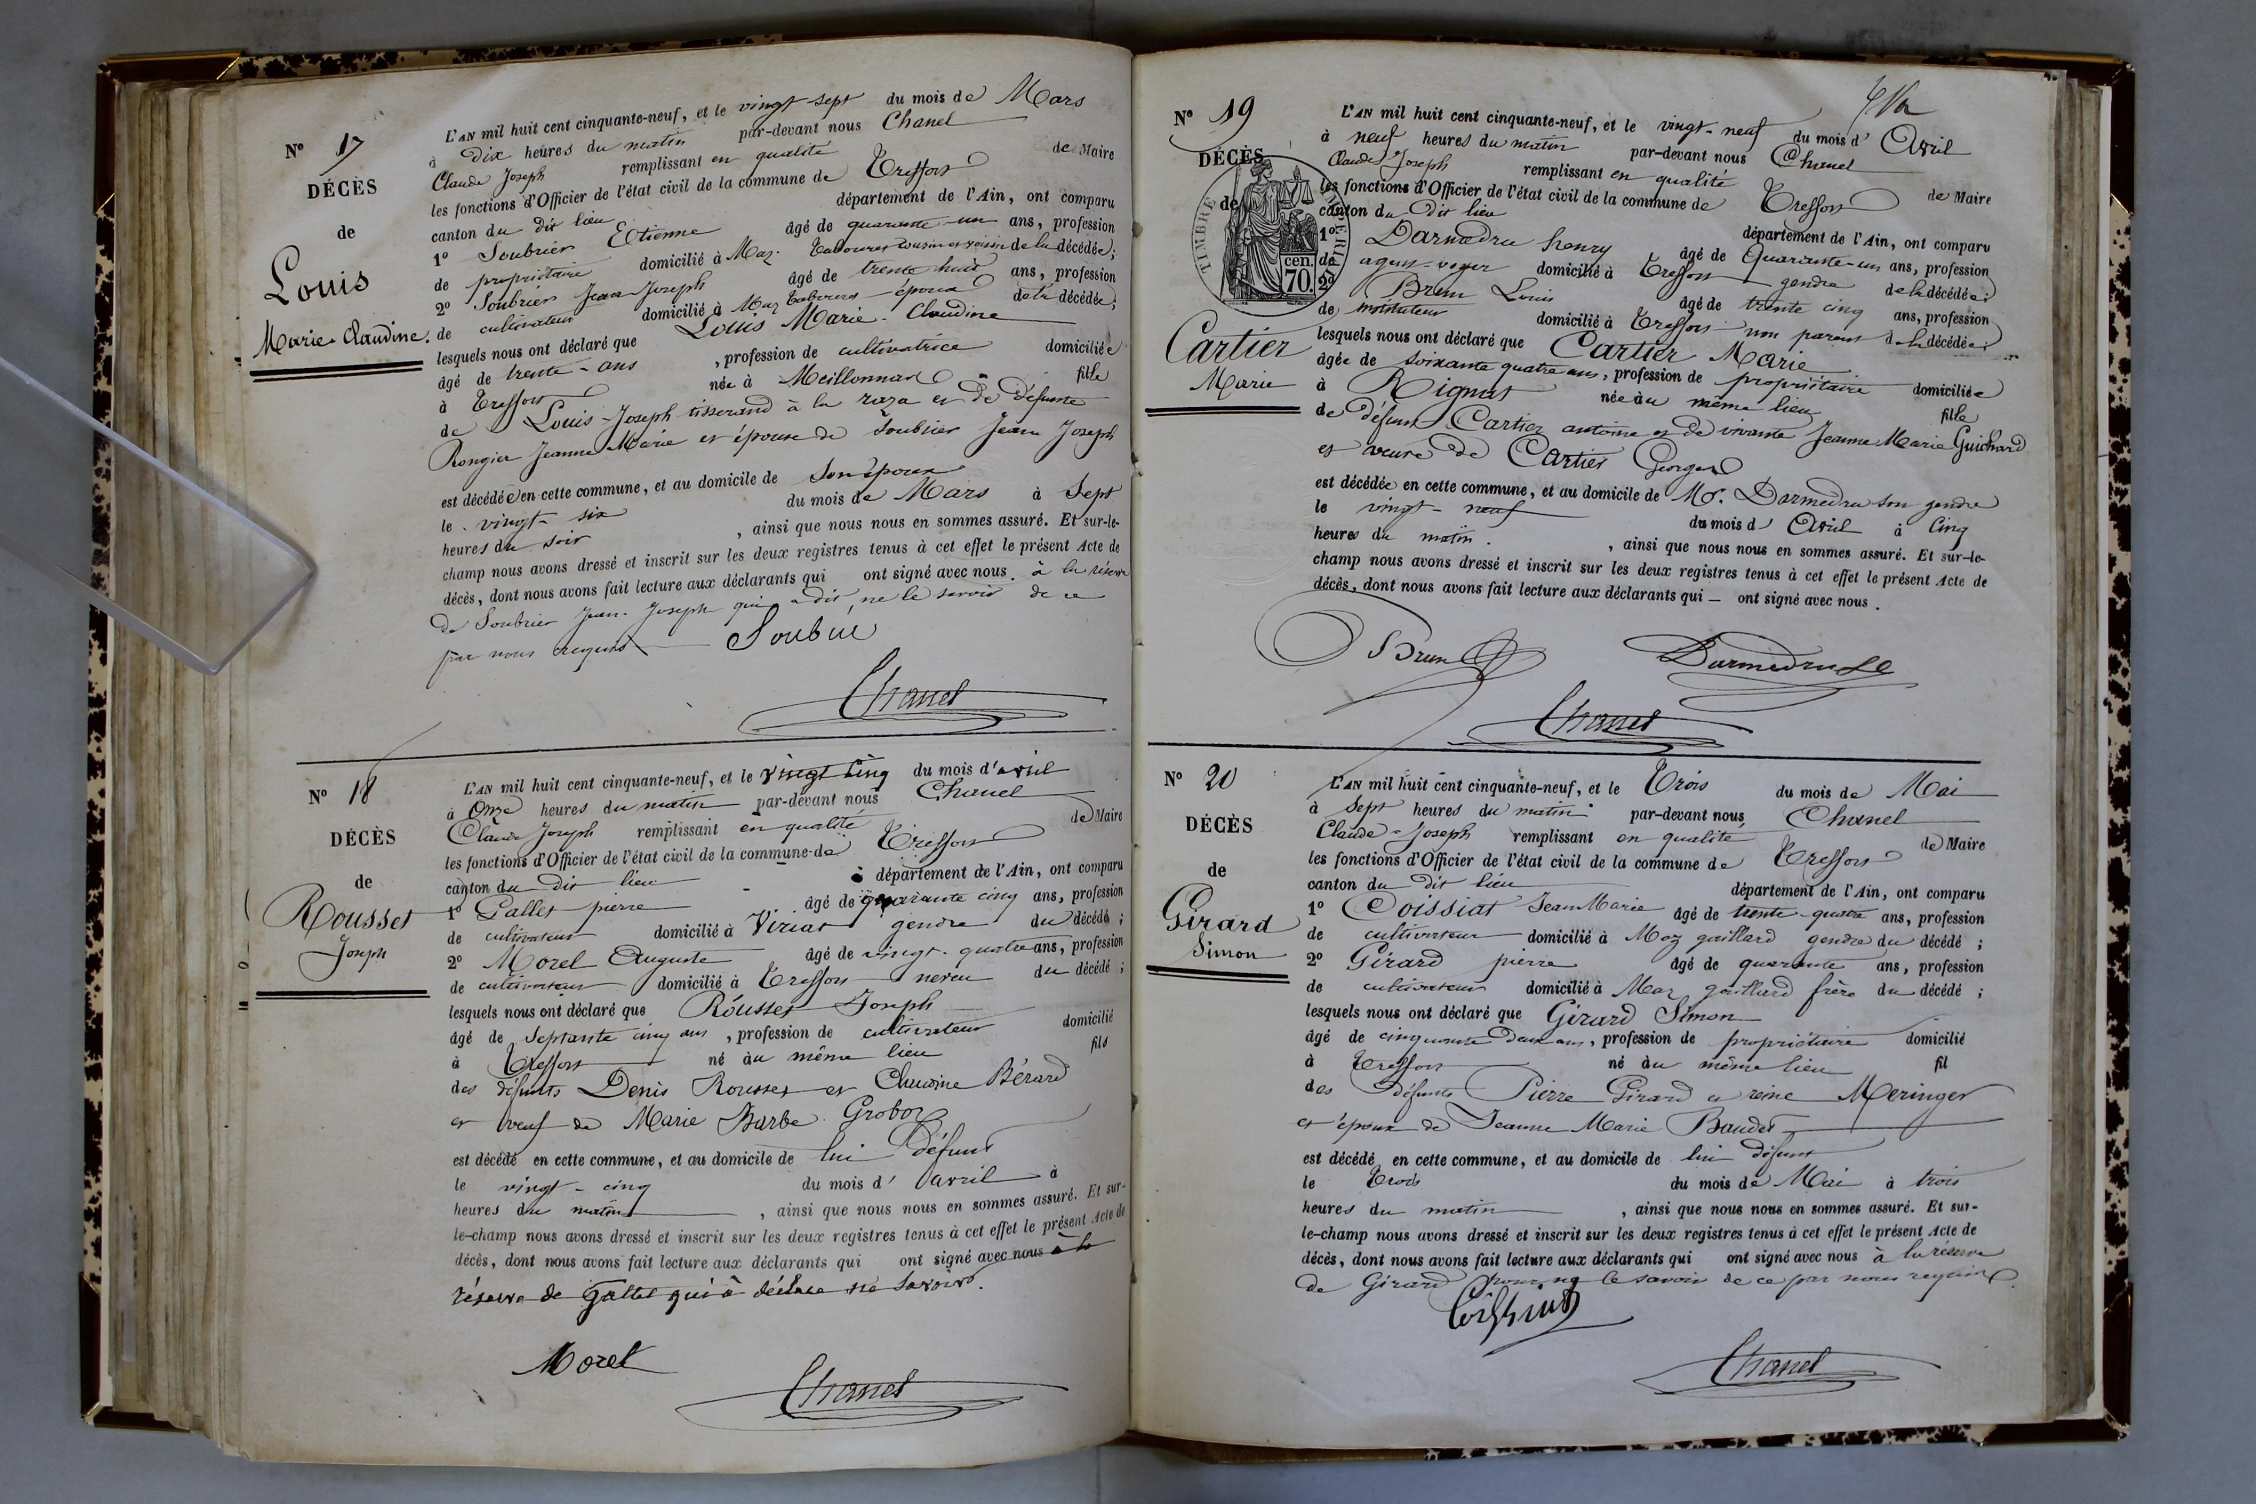 N° 17
DÉCÈS
de
Louis
Marie-Claudine.
L'AN mil huit cent cinquante-neuf, et le vingt sept du mois de Mars
à Dix heures du matin par-devant nous Chanel
Claude Joseph remplissant en qualité de Maire
les fonctions d'Officier de l'état civil de la commune de Treffort
canton du dit lieu département de l'Ain, ont comparu
1° Soubrier Etienne âgé de quarante-un ans, profession
de propriétaire domicilié à Maz. cousin et voisin de la décédée;
2° Soubrier Jean Joseph âgé de trente huit ans, profession
de cultivateur domicilié à Maz époux de la décédée;
lesquels nous ont déclaré que Louis Marie-Claudine
âgé de trente-ans, profession de cultivatrice domiciliée
à Treffort née à Meillonnas fille
de Louis-Joseph tisserand à la raza et de défunte
Rongier Jeanne Marie et épouse de Soubrier Jean Joseph
est décédée en cette commune, et au domicile de son époux
le vingt-six du mois de Mars à Sept
heures du soir, ainsi que nous nous en sommes assuré. Et sur-le-
champ nous avons dressé et inscrit sur les deux registres tenus à cet effet le présent Acte de
décès, dont nous avons fait lecture aux déclarants qui ont signé avec nous. à la réserve
de Soubrier Jean-Joseph qui a dit ne le savoir de ce
par nous requis
Soubrie
Chanel
N° 18
DÉCÈS
de
Rousset
Joseph
L'AN mil huit cent cinquante-neuf, et le vingt Cinq du mois d'avril
à Onze heures du matin par-devant nous Chanel
Claude Joseph remplissant en qualité de Maire
les fonctions d'Officier de l'état civil de la commune de Treffort
canton du dit lieu département de l'Ain, ont comparu
1° Gallet pierre âgé de quarante cinq ans, profession
de cultivateur domicilié à Viriat gendre du décédé;
2° Morel Auguste âgé de vingt-quatre ans, profession
de cultivateur domicilié à Treffort neveu du décédé;
lesquels nous ont déclaré que Rousset Joseph
âgé de Septante cinq ans, profession de cultivateur domicilié
à Treffort né au même lieu fils
des défunts Denis Rousset et Claudine Bérard
et veuf de Marie Barbe Grobon
est décédé en cette commune, et au domicile de lui défunt
le vingt-cinq du mois d'avril à
heures du matin, ainsi que nous nous en sommes assuré. Et sur-
le-champ nous avons dressé et inscrit sur les deux registres tenus à cet effet le présent Acte de
décès, dont nous avons fait lecture aux déclarants qui ont signé avec nous à la
réserve de Gallet qui à déclaré ne savoir.
Morel
Chanel
N° 19
DÉCÈS
de
TIMBRE IMPERIAL
70. cen.
Cartier
Marie
L'AN mil huit cent cinquante-neuf, et le vingt-neuf du mois d'Avril
à neuf heures du matin par-devant nous Chanel
Claude Joseph remplissant en qualité de Maire
les fonctions d'Officier de l'état civil de la commune de Treffort
canton du dit lieu département de l'Ain, ont comparu
1° Darmedru henry âgé de Quarante-un ans, profession
de agent-voyer domicilié à Treffort gendre de la décédée;
2° Brun Louis âgé de trente cinq ans, profession
de instituteur domicilié à Treffort non parent de la décédée;
lesquels nous ont déclaré que Cartier Marie
âgée de soixante quatre ans, profession de propriétaire domiciliée
à Rignat née au même lieu fille
de défunt Cartier antoine et de vivante Jeanne Marie Guichard
et veuve de Cartier Georges
est décédée en cette commune, et au domicile de Mr. Darmedru son gendre
le vingt-neuf du mois d'Avril à Cinq
heures du matin., ainsi que nous nous en sommes assuré. Et sur-le-
champ nous avons dressé et inscrit sur les deux registres tenus à cet effet le présent Acte de
décès, dont nous avons fait lecture aux déclarants qui — ont signé avec nous.
Brun
Darmedru
Chanel
N° 20
DÉCÈS
de
Girard
Simon
L'AN mil huit cent cinquante-neuf, et le Trois du mois de Mai
à sept heures du matin par-devant nous Chanel
Claude-Joseph remplissant en qualité de Maire
les fonctions d'Officier de l'état civil de la commune de Treffort
canton du dit lieu département de l'Ain, ont comparu
1° Coissiat Jean Marie âgé de trente-quatre ans, profession
de cultivateur domicilié à Maz gaillard gendre du décédé;
2° Girard pierre âgé de quarante ans, profession
de cultivateur domicilié à Maz gaillard frère du décédé;
lesquels nous ont déclaré que Girard Simon
âgé de cinquante Deux ans, profession de propriétaire domicilié
à Treffort né au même lieu fil
des défunts Pierre Girard et reine Meringer
et époux de Jeanne Marie Baudet
est décédé en cette commune, et au domicile de lui défunt
le Trois du mois de Mai à trois
heures du matin, ainsi que nous nous en sommes assuré. Et sur-
le-champ nous avons dressé et inscrit sur les deux registres tenus à cet effet le présent Acte de
décès, dont nous avons fait lecture aux déclarants qui ont signé avec nous à la réserve
de Girard pour ne le savoir de ce par nous requis
Coissiat
Chanel